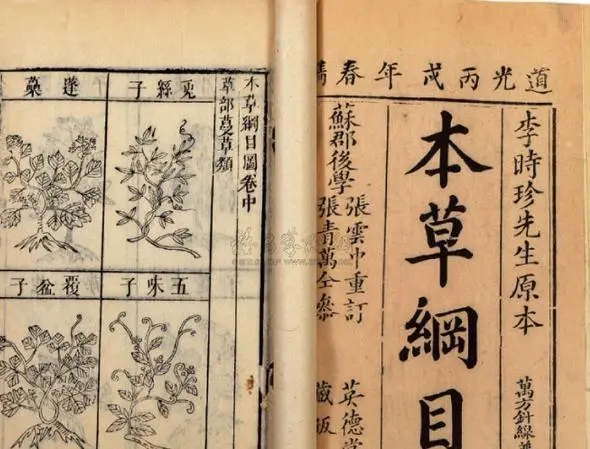 道光丙戌年春
李時珍先生原本
萬方針線
本草綱目
蘇郡後學
張雲中重訂
張青萬仝參
英德堂
藏版
本草綱目圖卷中
草部蔓草類
兎絲子
蓬蘽
五味子
覆盆子